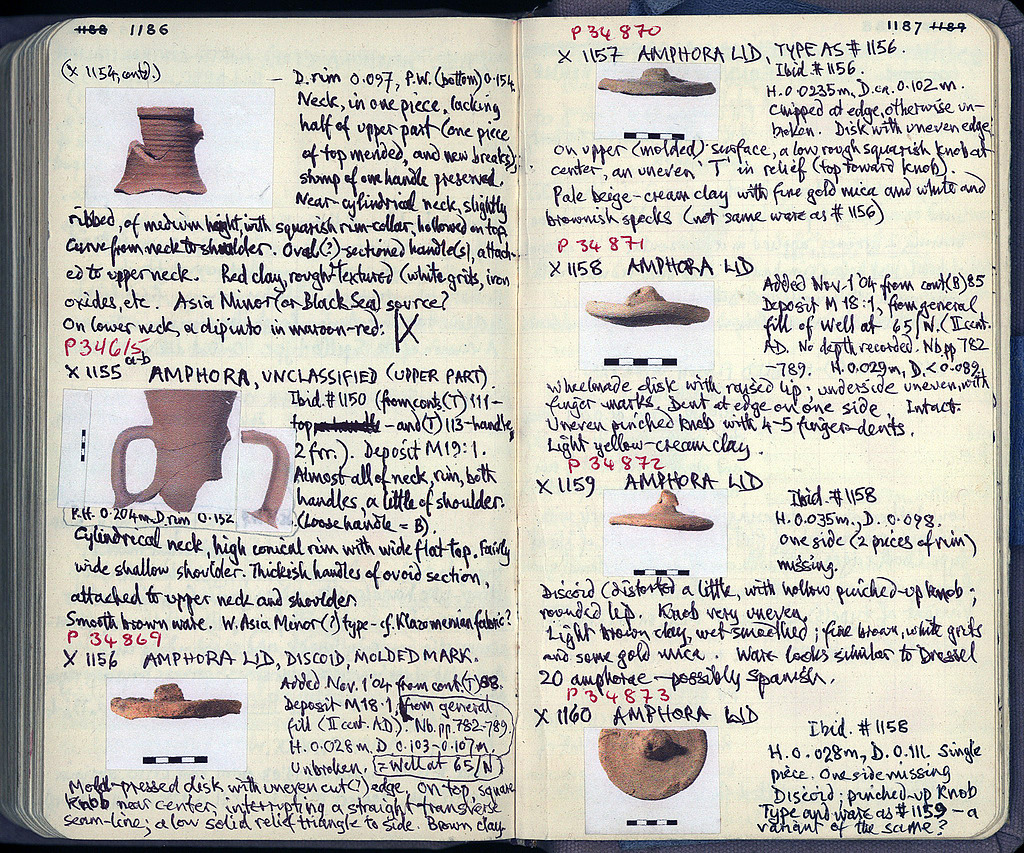 1188 1186
(X 1154, cont.)
– D. rim 0.097, P.W. (bottom) 0.154
Neck, in one piece, lacking
half of upper part (one piece
of top mended, and new breaks);
stump of one handle preserved.
Near-cylindrical neck, slightly
ribbed, of medium height, with squarish rim-collar, hollowed on top.
Curve from neck to shoulder. Oval(?)-sectioned handle(s), attach-
ed to upper neck. Red clay, rough-textured (white grits, iron
oxides, etc. Asia Minor (or Black Sea) source?
On lower neck, a dipinto in maroon-red:
P34615
a-b
X 1155 AMPHORA, UNCLASSIFIED (UPPER PART).
Ibid. # 1150 (from conts. (T) 111-
top – and (T) 113-handle,
2 frr.). Deposit M19:1.
Almost all of neck, rim, both
handles, a little of shoulder.
(Loose handle = B).
P.H. 0.204m. D. rim 0.152
Cylindrical neck, high conical rim with wide flat top. Fairly
wide shallow shoulder. Thickish handles of ovoid section,
attached to upper neck and shoulder.
Smooth brown ware. W. Asia Minor(?) type – cf. Klazomenian fabric?
P 34869
X 1156 AMPHORA LID, DISCOID, MOLDED MARK.
Added Nov. 1 '04 from cont. (T) 88.
Deposit M18:1, from general
fill (II cent. AD). Nb. pp. 782-789.
H. 0.028m, D. 0.103-0.107m.
Unbroken. = Well at 65/N
Mold-pressed disk with uneven cut(?) edge. On top, square
knob near center, interrupting a straight transverse
seam-line; a low solid relief triangle to side. Brown clay
1187 1189
P 34870
X 1157 AMPHORA LID, TYPE AS # 1156.
Ibid. # 1156.
H. 0.0235m, D. ca. 0.102m.
Chipped at edge, otherwise un-
broken. Disk with uneven edge;
on upper (molded) surface, a low rough squarish knob at
center, an uneven 'T' in relief (top toward knob).
Pale beige-cream clay with fine gold mica and white and
brownish specks (not same ware as # 1156)
P 34871
X 1158 AMPHORA LID
Added Nov. 1 '04 from cont (B) 85
Deposit M 18:1, from general
fill of Well at 65/N. (II cent.
AD. No depth recorded. Nb. pp 782
-789. H. 0.029m, D. < 0.089.
Wheelmade disk with raised lip; underside uneven, with
finger marks. Dent at edge on one side. Intact.
Uneven pinched knob with 4-5 finger-dents.
Light yellow-cream clay.
P 34872
X 1159 AMPHORA LID
Ibid. # 1158
H. 0.035m., D. 0.098.
One side (2 pieces of rim)
missing.
Discoid (distorted a little, with hollow pinched-up knob;
rounded lip. Knob very uneven.
Light brown clay, wet-smoothed; fine brown, white grits
and some gold mica. Ware looks similar to Dressel
20 amphorae – possibly Spanish.
P 34873
X 1160 AMPHORA LID
Ibid. # 1158
H. 0.028m, D. 0.111. Single
piece. One side missing
Discoid; pinched-up knob
Type and ware as # 1159 – a
variant of the same?